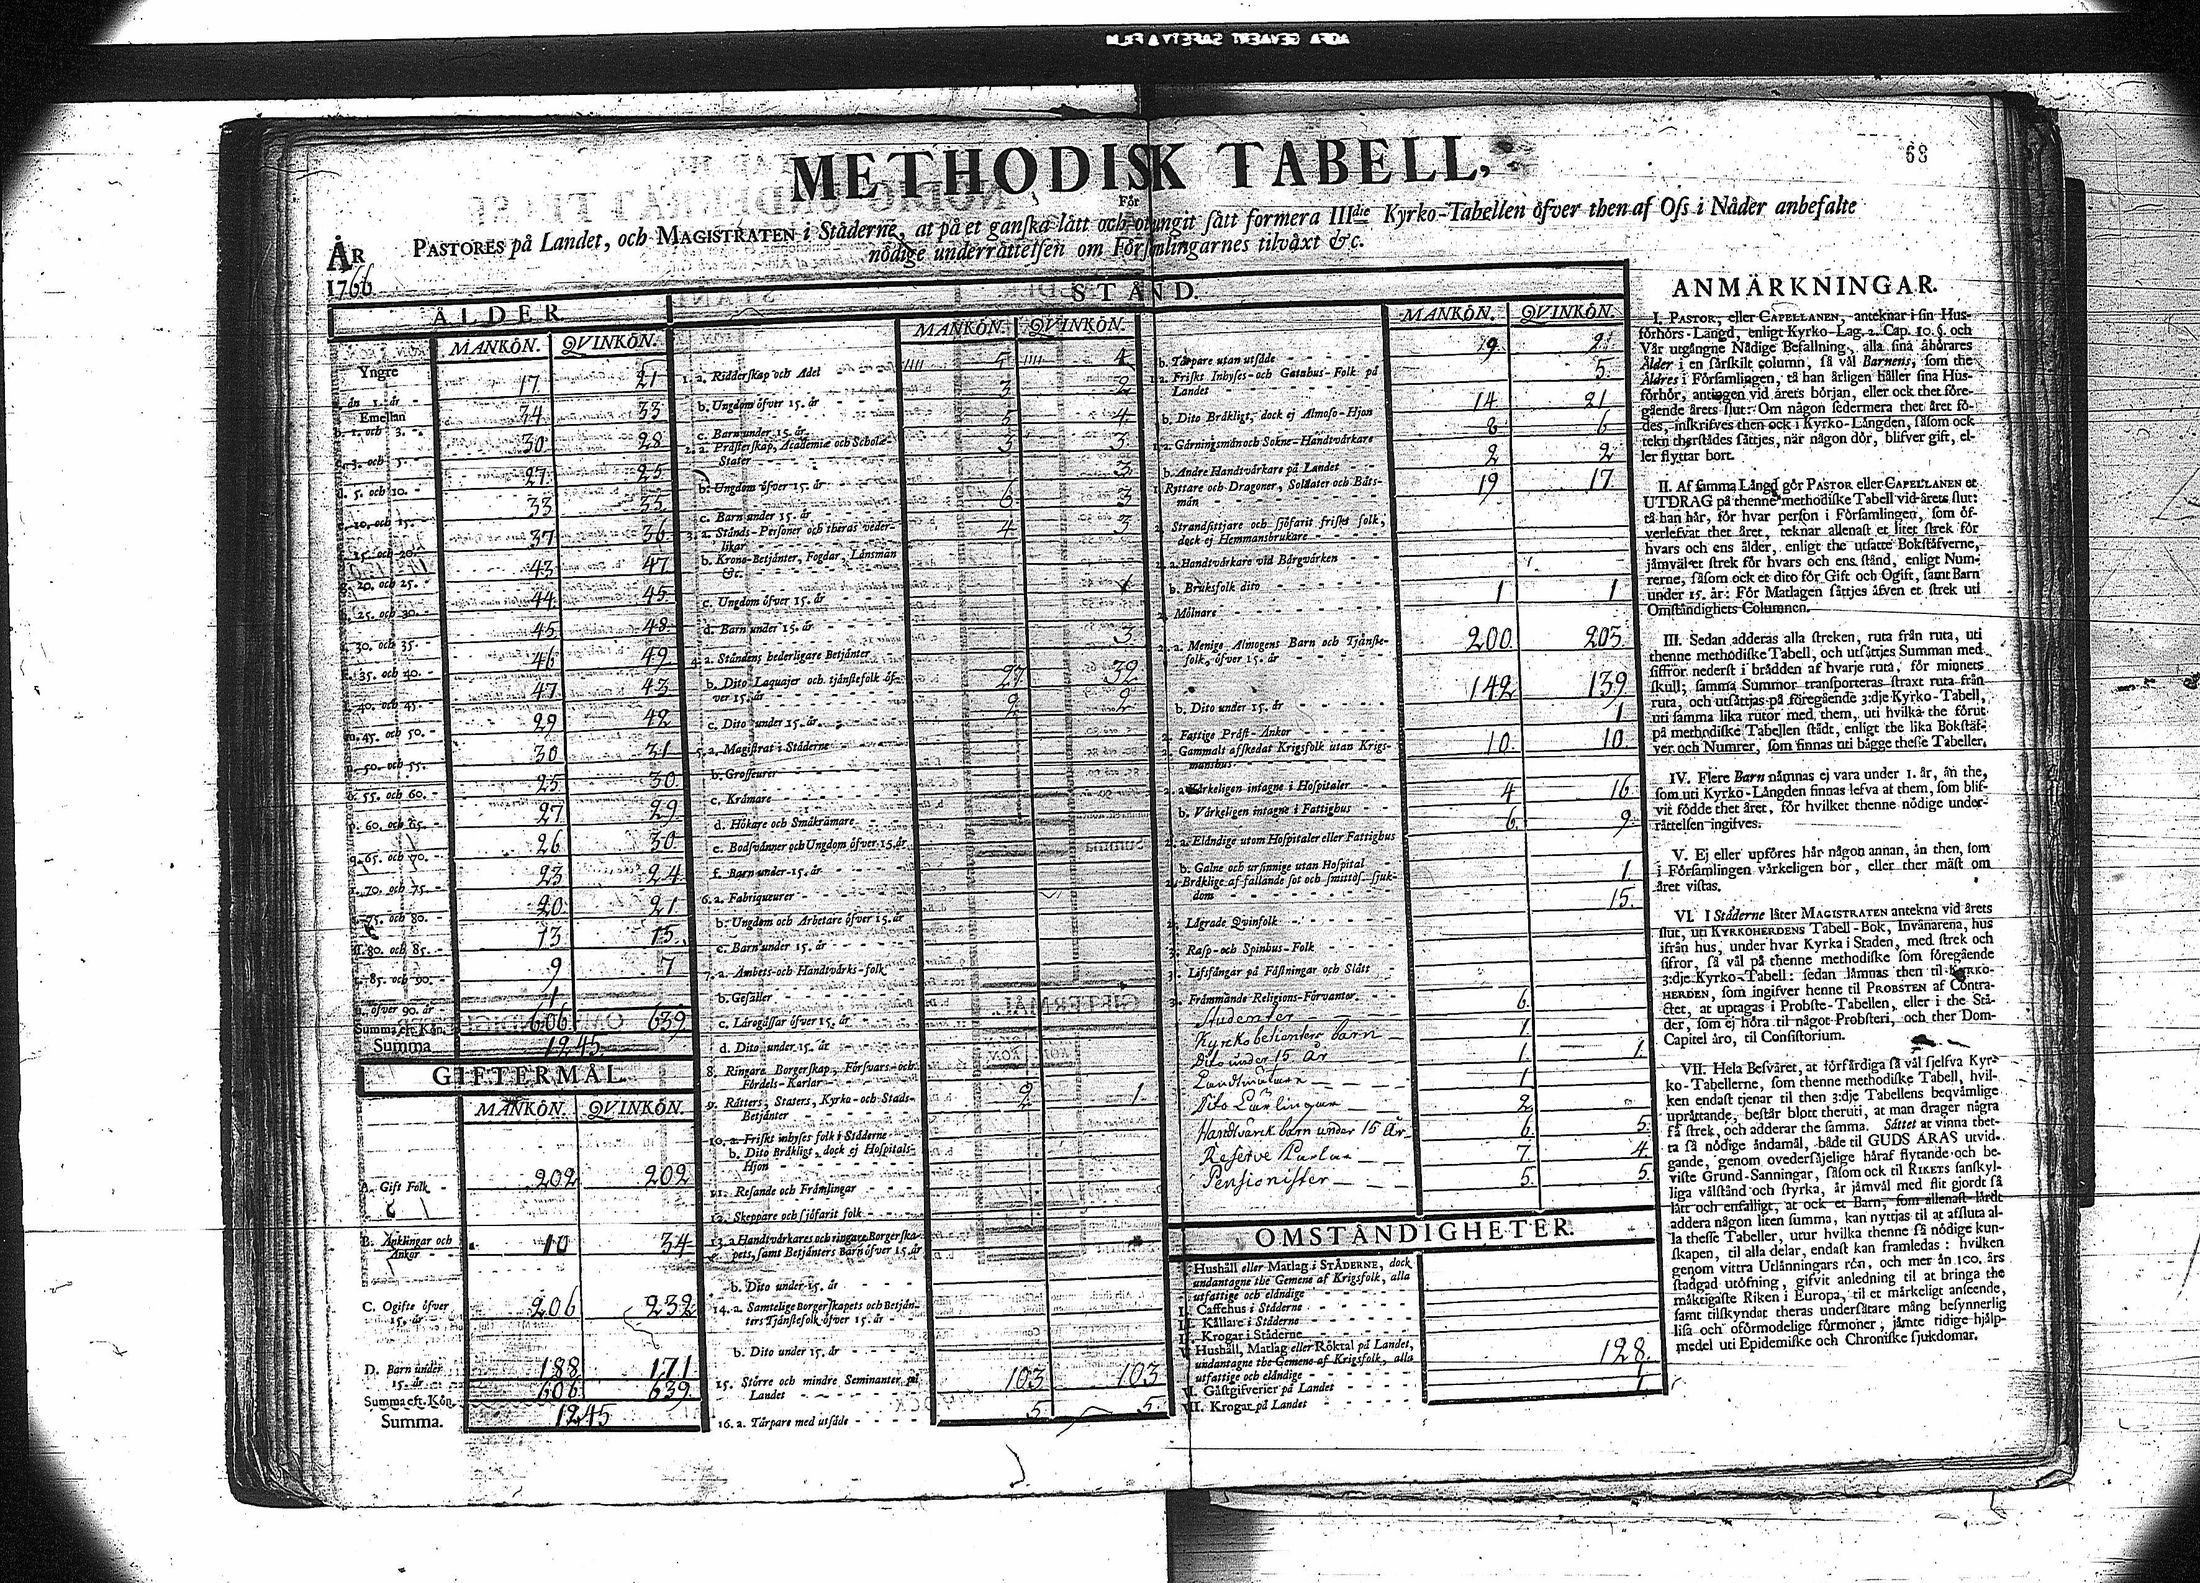 68
METHODISK TABELL,
För
PASTORES på Landet, och MAGISTRATEN i Städerne, at på et ganska lätt och otungit sätt formera IIIdie Kyrko-Tabellen öfver then af Oss i Nåder anbefalte
nödige underrättelsen om Församlingarnes tilväxt &c.
ÅR
1766
ÅLDER.
MANKÖN. QVINKÖN.
Yngre än 1. år 17 21
Emellan b. 1. och 3. 34 33
c. 3. och 5. 30 28
d. 5. och 10. 27 25
e. 10. och 15. 33 35
f. 15. och 20. 37 36
g. 20. och 25. 43 47
h. 25. och 30. 44 45
i. 30. och 35. 45 48
k. 35. och 40. 46 49
l. 40. och 45. 47 43
m. 45. och 50. 29 42
n. 50. och 55. 30 31
o. 55. och 60. 25 30
p. 60. och 65. 27 29
q. 65. och 70. 26 30
r. 70. och 75. 23 24
s. 75. och 80. 20 21
t. 80. och 85. 13 15
u. 85. och 90. 9 7
x. öfver 90. år 1
Summa eft. Kön. 606 639
Summa 1245
GIFTERMÅL.
MANKÖN. QVINKÖN.
A. Gift Folk 202 202
B. Änklingar och Änkor 10 34
C. Ogifte öfver 15. år 206 232
D. Barn under 15. år 188 171
Summa eft. Kön. 606 639
Summa. 1245
STÅND.
MANKÖN. QVINKÖN.
1. a. Ridderskap och Adel 5 4
b. Ungdom öfver 15. år 3 2
c. Barn under 15. år 5 4
2. a. Prästerskap, Academiæ och Scholæ-Stater 3 3
b. Ungdom öfver 15. år 3
c. Barn under 15. år 6 3
3. a. Stånds-Personer och theras vederlikar 4 3
b. Krono-Betjänter, Fogdar, Länsmän &c.
c. Ungdom öfver 15. år
d. Barn under 15. år
4. a. Ståndens hederligare Betjänter 3
b. Dito Laquajer och tjänstefolk öfver 15. år 27 32
c. Dito under 15. år 2 2
5. a. Magistrat i Städerne
b. Grosseurer
c. Krämare
d. Hökare och Småkrämare
e. Bodsvänner och Ungdom öfver 15. år
f. Barn under 15. år
6. a. Fabriqueurer
b. Ungdom och Arbetare öfver 15. år
c. Barn under 15. år
7. a. Ämbets-och Handtvärks-folk
b. Gesäller
c. Lärogässar öfver 15. år
d. Dito under 15. år
8. Ringare Borgerskap, Försvars-och Fördels-Karlar
9. Rätters, Staters, Kyrko-och Stads-Betjänter 2 1
10. a. Friskt inhyses folk i Städerne
b. Dito Bräkligt, dock ej Hospitals-Hjon
11. Resande och Främlingar
12. Skeppare och sjöfarit folk
13. a. Handtvärkares och ringare Borgerskapets, samt Betjänters Barn öfver 15. år
b. Dito under 15. år
14. a. Samtelige Borgerskapets och Betjänters Tjänstefolk öfver 15. år
b. Dito under 15. år
15. Större och mindre Seminanter på Landet 103 103
16. a. Tårpare med utsäde 5 5
MANKÖN. QVINKÖN.
b. Tårpare utan utsäde 2
a. Friskt Inhyses-och Gatuhus-Folk på Landet 5
b. Dito Bräkligt, dock ej Almoso-Hjon 14 21
a. Gärningsmän och Sokne-Handtvärkare 8 6
b. Andre Handtvärkare på Landet 2 2
Ryttare och Dragoner, Soldater och Båtsmän 19 17
Strandsittjare och sjöfarit friskt folk, dock ej Hemmansbrukare
a. Handtvärkare vid Bärgvärken
b. Bruksfolk dito
Mölnare 1 1
a. Menige Almogens Barn och Tjänstefolk, öfver 15. år 200 203
b. Dito under 15. år 142 139
Fattige Präst-Änkor 1
Gammalt afskedat Krigsfolk utan Krigsmanshus 10 10
a. Värkeligen intagne i Hospitaler
b. Värkeligen intagne i Fattighus 4 16
a. Eländige utom Hospitaler eller Fattighus 6 9
b. Galne och ursinnige utan Hospital
Bräklige af fallande sot och smittos. sjukdom 1
Lägrade Qvinfolk 15
Rasp-och Spinhus-Folk
Lifsfångar på Fästningar och Slått
Främmande Religions-Förvanter
Studenter 6
Kyrckobetienter barn 1
Dito under 15 år 1 1
Landtmätare 1
Dito Lärlingar 2
Handtvärck barn under 15 år 6 5
Reserve Karlar 7 4
Pensionister 5 5
OMSTÄNDIGHETER.
Hushåll eller Matlag i STÄDERNE, dock undantagne the Gemene af Krigsfolk, alla utfattige och eländige
Caffehus i Städerne
Källare i Städerne
Krogar i Städerne
Hushåll, Matlag eller Röktal på Landet, undantagne the Gemene af Krigsfolk, alla utfattige och eländige 128
VI. Gästgifverier på Landet 1
VII. Krogar på Landet
ANMÄRKNINGAR.
I. PASTOR, eller CAPELLANEN, anteknar i sin Hus-
förhörs-Längd, enligt Kyrko-Lag. 2. Cap. 10. §. och
Vår utgångne Nådige Befallning, alla sina åhörares
Ålder i en särskilt column, så väl Barnens, som the
Äldres i Församlingen, tå han årligen håller sina Hus-
förhör, antingen vid årets början, eller ock thet före-
gående årets slut: Om någon sedermera thet året fö-
des, inskrifves then ock i Kyrko-Längden, såsom ock
tekn therstädes sättjes, när någon dör, blifver gift, el-
ler flyttar bort.
II. Af samma Längd gör PASTOR eller CAPELLANEN et
UTDRAG på thenne methodiske Tabell vid årets slut:
tå han här, för hvar person i Församlingen, som öf-
verlefvat thet året, teknar allenast et litet strek för
hvars och ens ålder, enligt the utsatte Bokstäfverne,
jämväl et strek för hvars och ens stånd, enligt Num-
rerne, såsom ock et dito för Gift och Ogift, samt Barn
under 15. år: För Matlagen sättjes äfven et strek uti
Omständighets Columnen.
III. Sedan adderas alla streken, ruta från ruta, uti
thenne methodiske Tabell, och utsättjes Summan med
siffror nederst i brädden af hvarje ruta, för minnets
skull; samma Summor transporteras straxt ruta från
ruta, och utsättjas på föregående 3:dje Kyrko-Tabell,
uti samma lika rutor med them, uti hvilka the förut
på methodiske Tabellen städt, enligt the lika Bokstäf-
ver och Numrer, som finnas uti bägge thesse Tabeller.
IV. Flere Barn nämnas ej vara under 1. år, än the,
som uti Kyrko-Längden finnas lefva at them, som blif-
vit födde thet året, för hvilket thenne nödige under-
rättelsen ingifves.
V. Ej eller upföres här någon annan, än then, som
i Församlingen värkeligen bor, eller ther mäst om
året vistas.
VI. I Städerne låter MAGISTRATEN antekna vid årets
slut, uti KYRKOHERDENS Tabell-Bok, Invånarena, hus
ifrån hus, under hvar Kyrka i Staden, med strek och
sifror, så väl på thenne methodiske som föregående
3:dje Kyrko-Tabell: sedan lämnas then til KYRKO-
HERDEN, som ingifver henne til PROBSTEN af Contra-
ctet, at uptagas i Probste-Tabellen, eller i the Stä-
der, som ej höra til något Probsteri, och ther Dom-
Capitel äro, til Consistorium.
VII. Hela Besväret, at förfärdiga så väl sjelfva Kyr-
ko-Tabellerne, som thenne methodiske Tabell, hvil-
ken endast tjenar til then 3:dje Tabellens beqvämlige
uprättande, består blott theruti, at man drager några
få strek, och adderar the samma. Sättet at vinna thet-
ta så nödige ändamål, både til GUDS ÄRAS utvid-
gande, genom ovedersäjelige häraf flytande och be-
viste Grund-Sanningar, såsom ock til RIKETS sanskyl-
liga välstånd och styrka, är jämväl med flit gjordt så
lätt och enfalligt, at ock et Barn, som allenast lärdt
addera någon liten summa, kan nyttjas til at afsluta al-
la thesse Tabeller, utur hvilka thenne så nödige kun-
skapen, til alla delar, endast kan framledas: hvilken
genom vittra Utlänningars rön, och mer än 100. års
stadgad utöfning, gifvit anledning til at bringa the
mäktigaste Riken i Europa, til et märkeligt anseende,
samt tilskyndat theras undersåtare mång besynnerlig
lisa och oförmodelige förmoner, jämte tidige hjälp-
medel uti Epidemiske och Chroniske sjukdomar.